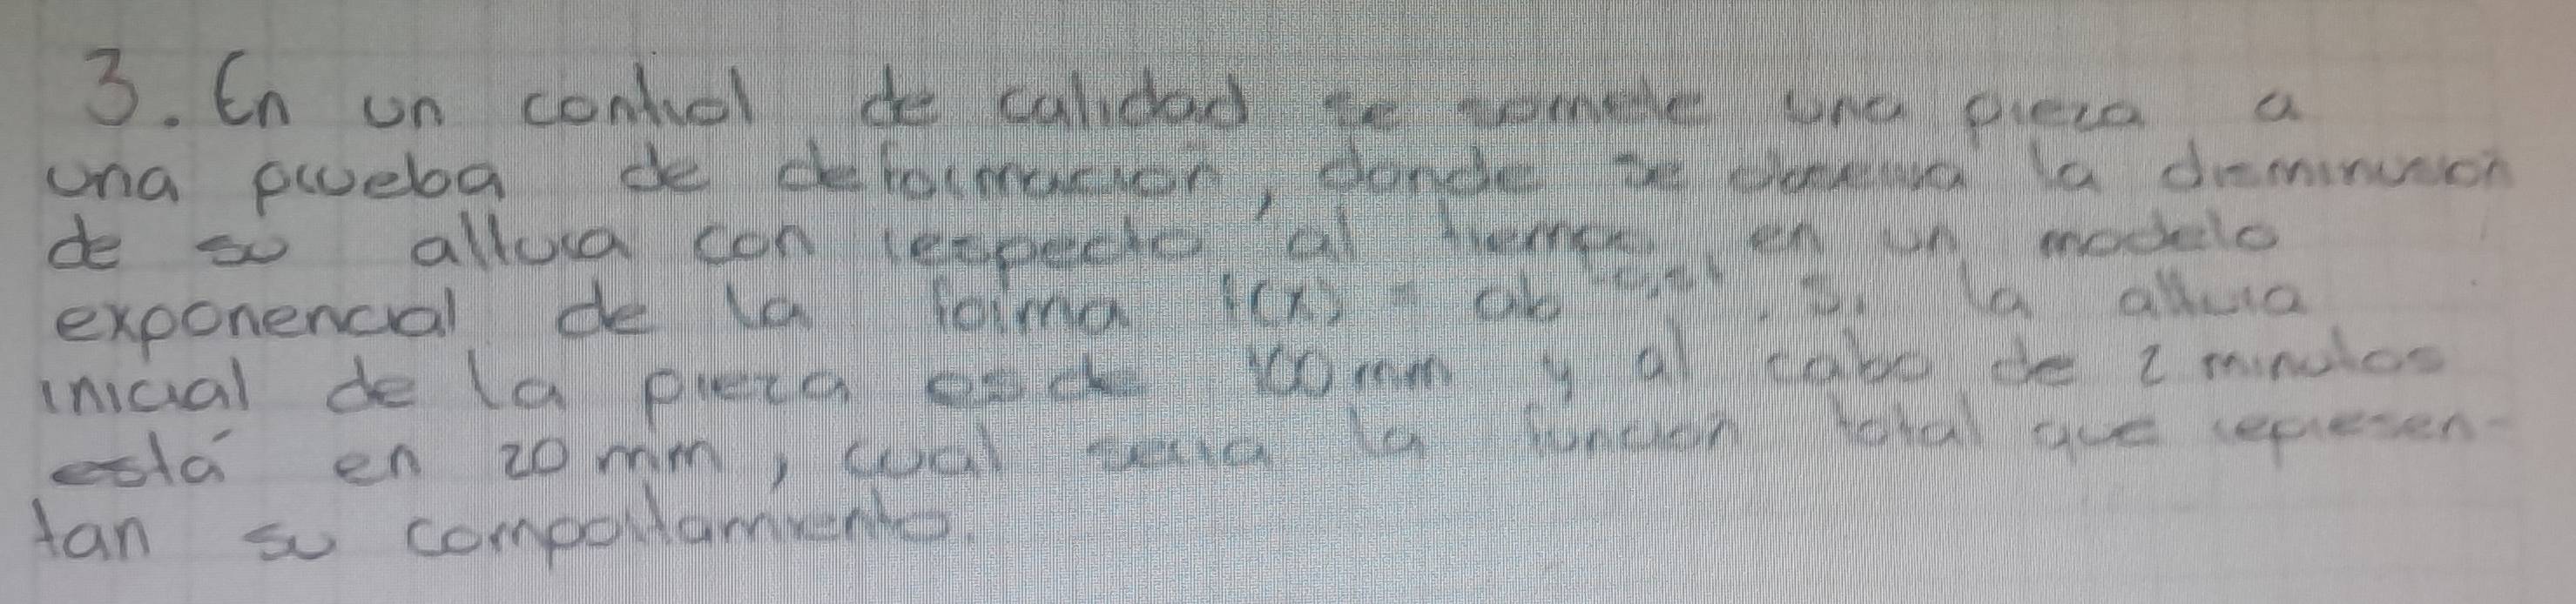 3. En un control de calidad se somete una pieza a
una prueba de deformación, donde se observa la disminución
de su altura con respecto al tiempo en un modelo
exponencial de la forma f(x) = ab . Si la altura
inicial de la pieza es de 100 mm y al cabo de 2 minutos
está en 20 mm, cual seria la función total que represen-
tan su comportamiento.